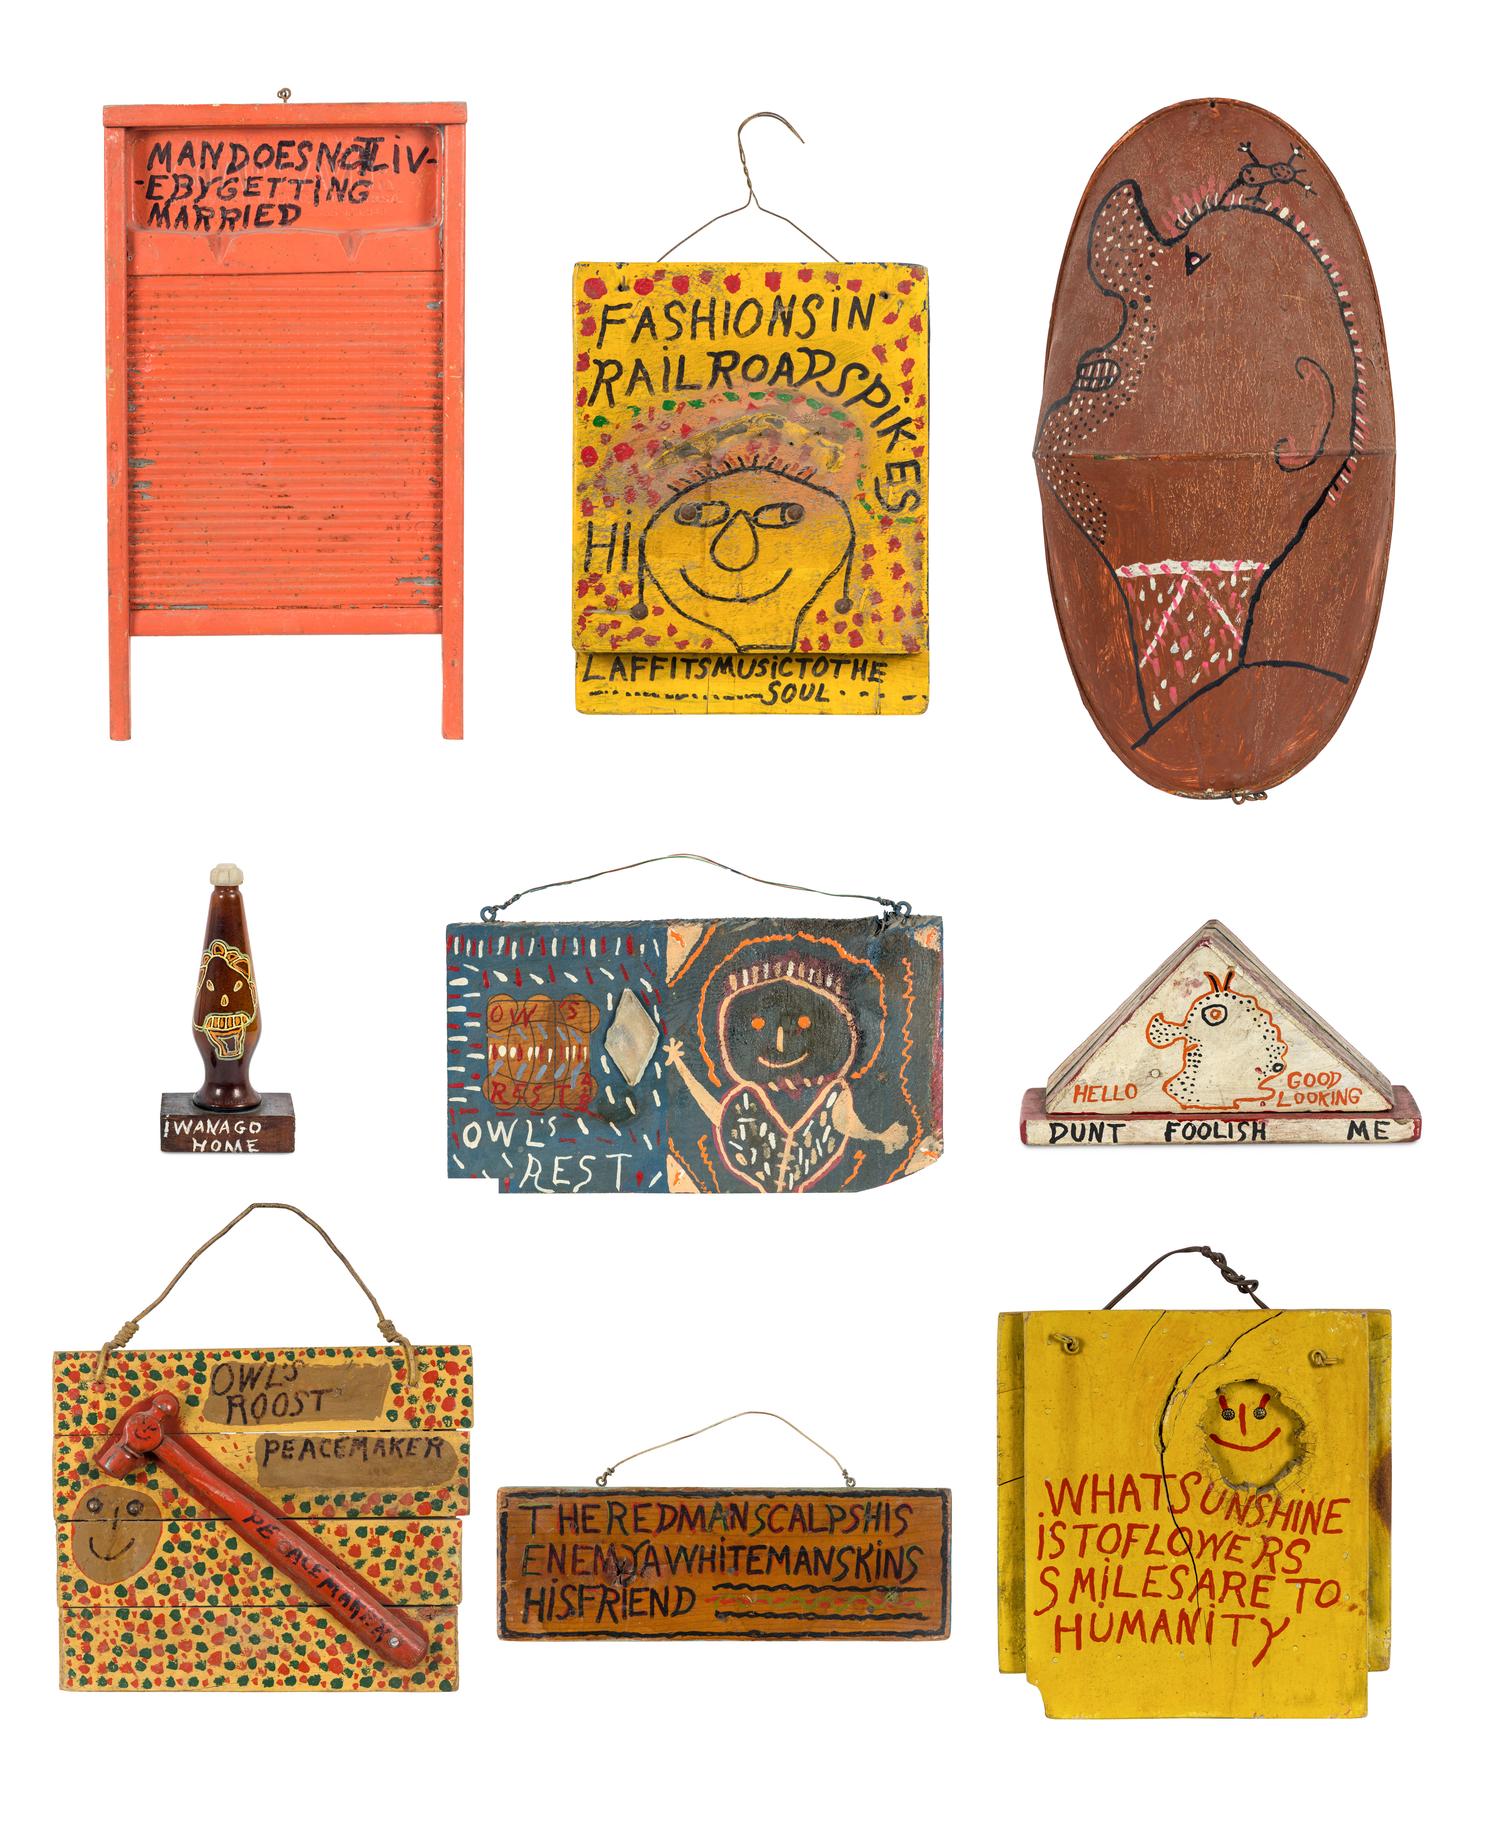 MANDOESNOTLIV-
-EBYGETTING
MARRIED
FASHIONSIN
RAILROADSPIKES
HI
LAFFITSMUSICTOTHE
SOUL
IWANAGO
HOME
OW'S
REST
OWL'S
REST
HELLO
GOOD
LOOKING
DUNT FOOLISH ME
OWL'S
ROOST
PEACEMAKER
PEACEMAKER
THEREDMANSCALPSHIS
ENEMYAWHITEMANSKINS
HISFRIEND
WHATSUNSHINE
ISTOFLOWERS
SMILESARE TO
HUMANITY